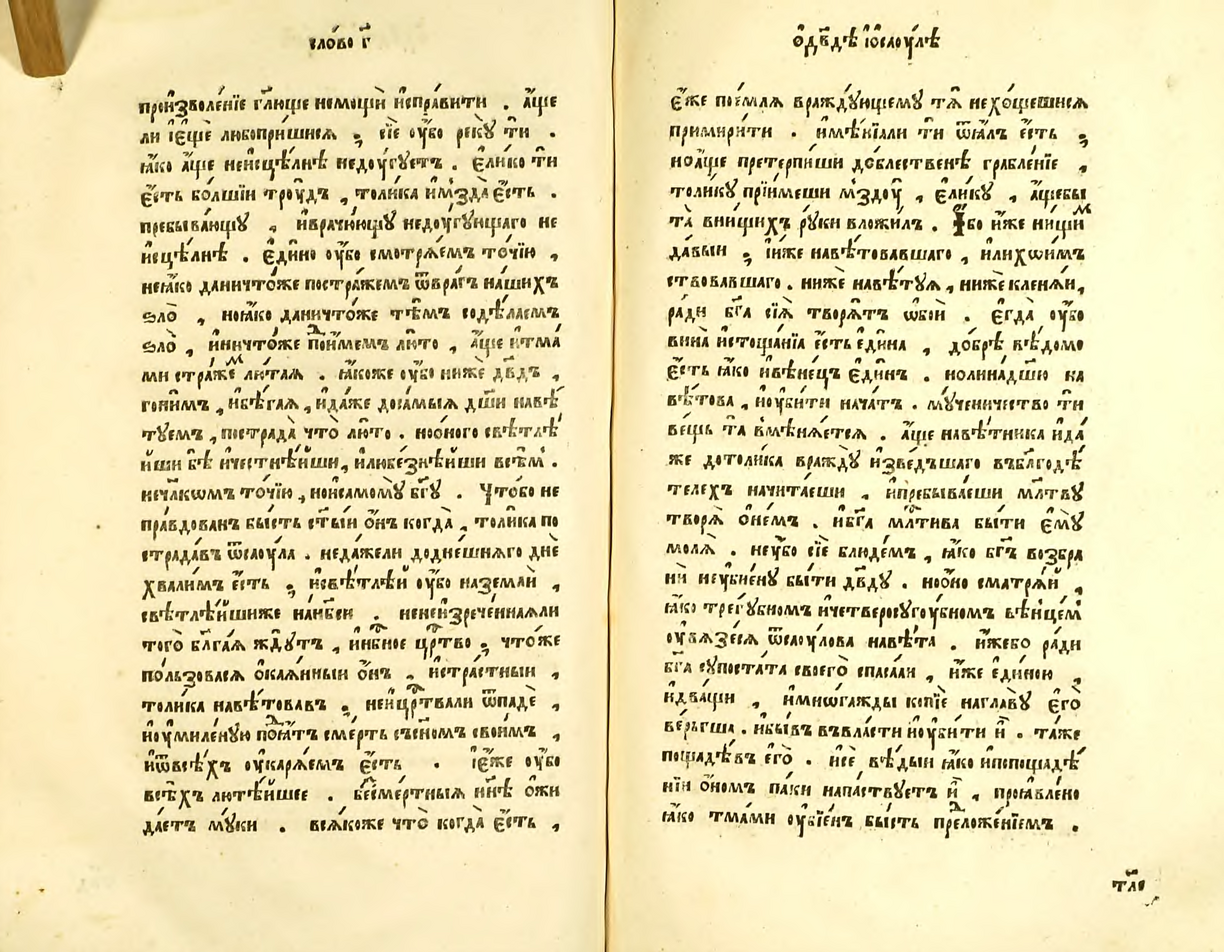 сло́во г҃
произволе́нїе гл҃юще немощнѝ и҆спра́вити . а҆́ще
ли і҆е҆щѐ любопри́шисѧ , сїѐ оу҆̀бо рекꙋ̀ тѝ .
ꙗ҆́ко а҆́ще неисцѣ́лнѣ недоу́гꙋетъ . є҆ли́ко тѝ
є҆́сть бо́лшїи трꙋ́дъ , толи́ка и҆мздѧ̀ є҆́сть .
пребыва́ющꙋ , и҆врачꙋ́ющꙋ недоу́гꙋющаго не
исцѣ́лнѣ . є҆ди́но оу҆̀бо смотрѧ́емъ то́чїю ,
неꙗ҆́ко даничто́же постра́жемъ ѿвра́гъ на́шихъ
ѕло̀ , ноꙗ҆́ко даничто́же тѣ́мъ содѣ́лаемъ
ѕло̀ , и҆ничто́же по́имемъ лю́то , а҆́ще и҆тма́
ми стра́жемъ лю́таѧ . ꙗ҆́коже оу҆̀бо ниже дв҃дъ ,
гони́мъ , и҆бѣ́гаѧ , и҆да́же доса́мыѧ дш҃и навѣ
тꙋ́емъ , пострада̀ что̀ лю́то . но о҆́ного свѣтлѣ́
йши бѣ̀ и҆честнѣ́йши , и҆любезнѣ́йши всѣ́мъ .
нечл҃кѡмъ то́чїю , но и҆самомꙋ̀ бг҃ꙋ . Что́бо не
пра́вдованъ бы́сть ст҃ы́й о҆́нъ когда̀ , толи́ка по
страда́въ ѿсаꙋ́ла . не да́жели доднешнѧ́го днѐ
хва́лимъ є҆́сть , и҆свѣтлѣ́й оу҆̀бо наземлѝ ,
свѣтлѣ́йшиже на нб҃сѝ . ненеизрече́ннаѧли
того̀ бл҃га́ѧ ждꙋ́тъ , и҆нбⷭ҇ное црⷭ҇тво , что́же
по́льзовасѧ о҆каѧ́нныи о҆́нъ , и҆стра́стныи ,
толи́ка навѣтова́въ . не и҆црⷭ҇твали ѿпадѐ ,
и҆оумиле́нꙋю поѧ́тъ сме́рть съсномъ свои́мъ ,
и҆ѿвсѣ́хъ оу҆карѧ́емъ є҆́сть . і҆є҆́же оу҆̀бо
всѣ́хъ лютѣ́йшее . бесме́ртныѧ нн҃ѣ о҆жи
да́етъ мꙋ́ки . всѧ́коже что̀ когда̀ є҆́сть ,
ѡ҆дв҃дѣ і҆ѡ҆саоу́лѣ
є҆́же пое́млѧ враждꙋ́ющемꙋ тѧ̀ не хо́щешисѧ
примири́ти . и҆мѣ́нїѧли тѝ ѿѧ́лъ є҆́сть ,
но а҆́ще претерпи́ши до́блественѣ грабле́нїе ,
толи́кꙋ прїи́меши мздоу̀ , є҆ли́кꙋ , а҆́щебы
та̀ вни́щихъ рꙋ́ки вложи́лъ . И҆́бо и҆́же ни́щимъ
да́выи , и҆и҆́же навѣ́товавшаго , и҆лихѡи́мъ
ствовавшаго . ни́же навѣтꙋ́ѧ , ни́же кленѧ́и ,
ра́ди бг҃а сїѧ̀ творѧ́тъ ѡ҆бои̑ . є҆гда̀ оу҆̀бо
вина̀ и҆стоща́нїа є҆́сть є҆ди́на , до́брѣ вѣ́домо
є҆́сть ꙗ҆́ко и҆вѣне́цъ є҆ди́нъ . но линадшю на
вѣ́това , и҆оуби́ти нача́тъ . мꙋ́ченичество тѝ
ве́щь та̀ вмѣнѧ́етсѧ . а҆́ще навѣ́тника и҆да́
же дотоли́ка враждꙋ̀ и҆зве́дъшаго въблг҃одѣ́
телехъ начита́еши , и҆пребыва́еши мл҃твꙋ
творѧ̀ о҆не́мъ . и҆бг҃а млⷭ҇тива бы́ти є҆мꙋ̀
молѧ̀ . не оу҆̀бо сїѐ блюде́мъ , ꙗ҆́ко бг҃ъ возбра
нѝ не оу҆бие́нꙋ бы́ти дв҃дꙋ . но о҆́но смотрѧ́й ,
ꙗ҆́ко трегꙋ́бномъ и҆четверосꙋгоу́бномъ вѣнце́мъ
оу҆вѧзе́сѧ ѿсаоу́лова навѣ́та . и҆́жебо ра́ди
бг҃а сꙋпоста́та своего̀ спаса́ѧи , и҆́же є҆ди́ною ,
и҆два́щи , и҆мно́гажды копїѐ наглавꙋ̀ є҆го̀
ве́ргша . и҆бы́въ въвла́сти и҆оуби́ти и҆̀ . та́же
пощадѣ́въ є҆го̀ . и҆сѐ вѣ́дыи ꙗ҆́ко и҆попощадѣ́
нїи о҆́номъ па́ки напа́ствꙋетъ и҆̀ , проꙗ҆влено
ꙗ҆́ко тма́ми оу҆бїе́нъ бы́сть предложе́нїемъ .
тѣⷨ